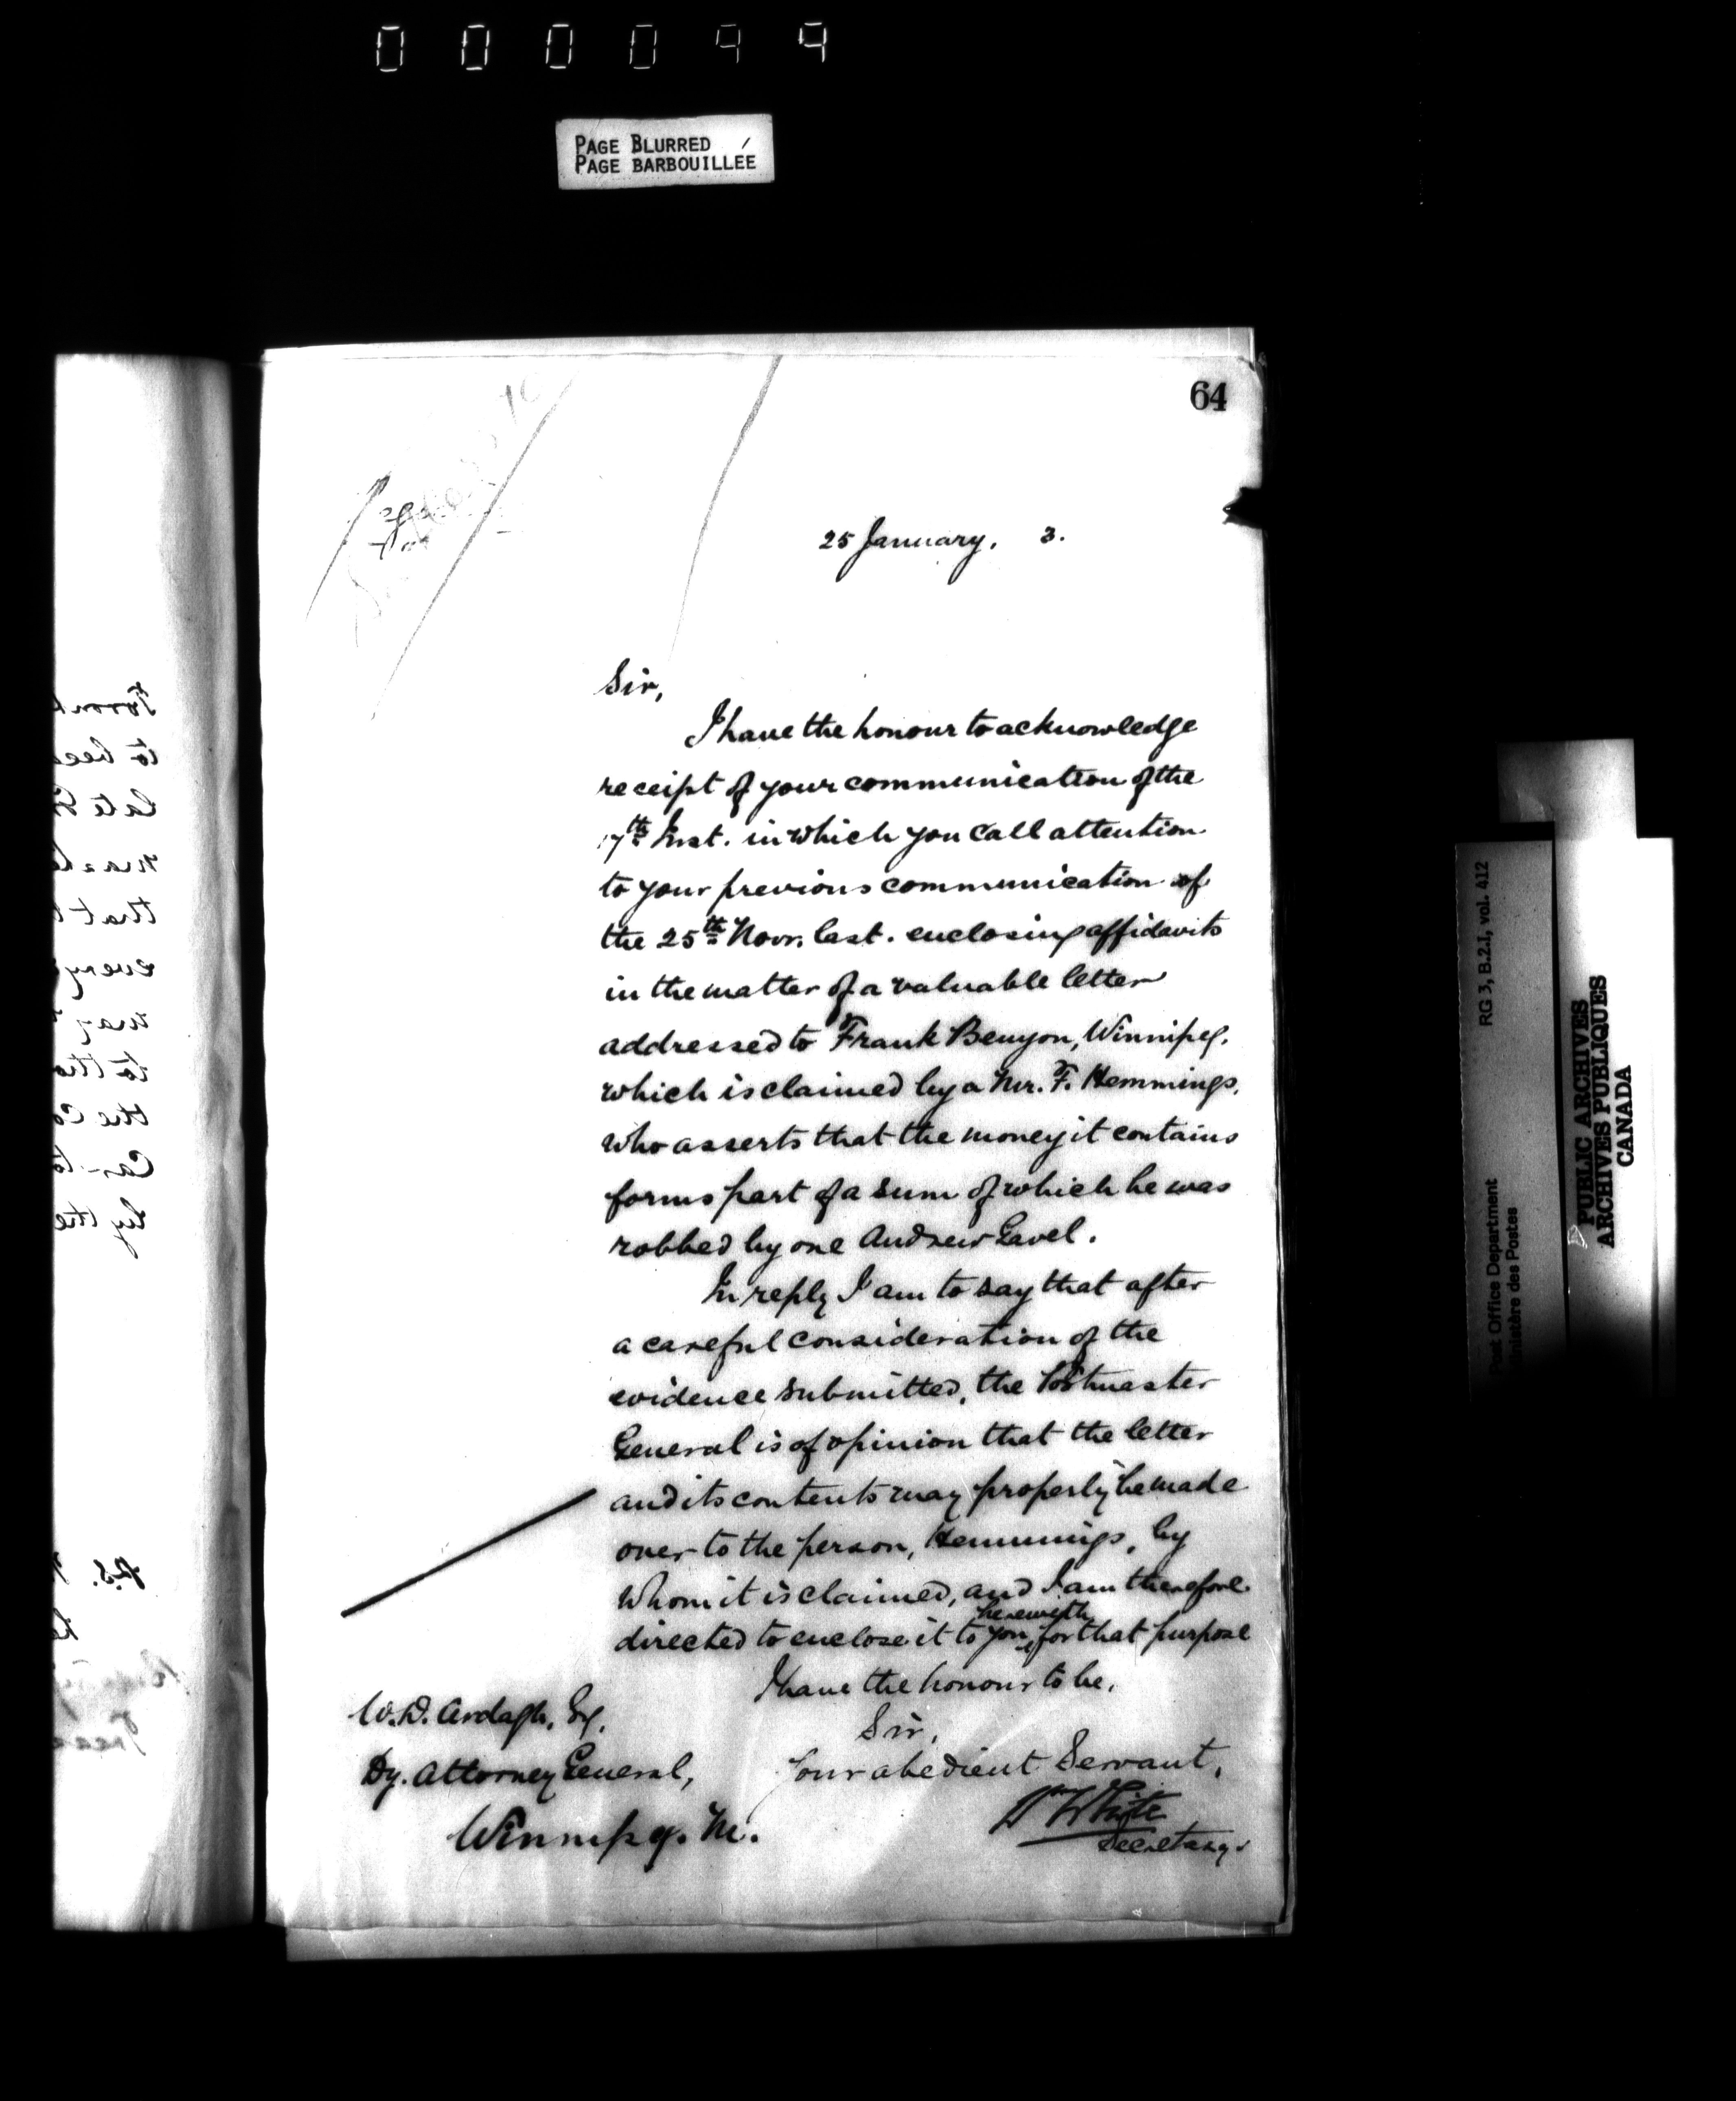 000044
PAGE BLURRED
PAGE BARBOUILLÉE
64
25 January, 3.
Sir,
I have the honour to acknowledge
receipt of your communication of the
17th Inst. in which you call attention
to your previous communication of
the 25th Novr. last. enclosing affidavits
in the matter of a valuable letter
addressed to Frank Benyon, Winnipeg.
which is claimed by a Mr. F. Hemmings,
who asserts that the money it contains
forms part of a sum of which he was
robbed by one Andrew Gavel.
In reply I am to say that after
a careful consideration of the
evidence submitted, the Postmaster
General is of opinion that the letter
and its contents may properly be made
over to the person, Hemmings, by
whom it is claimed, and I am therefore
directed to enclose it to you herewith for that purpose
I have the honour to be,
Sir,
Your obedient Servant,
Wm White
Secretary.
W. D. Ardagh, Esq.
Dy. Attorney General,
Winnipeg. M.
RG 3, B.2.I, vol. 412
Post Office Department
Ministère des Postes
PUBLIC ARCHIVES
ARCHIVES PUBLIQUES
CANADA